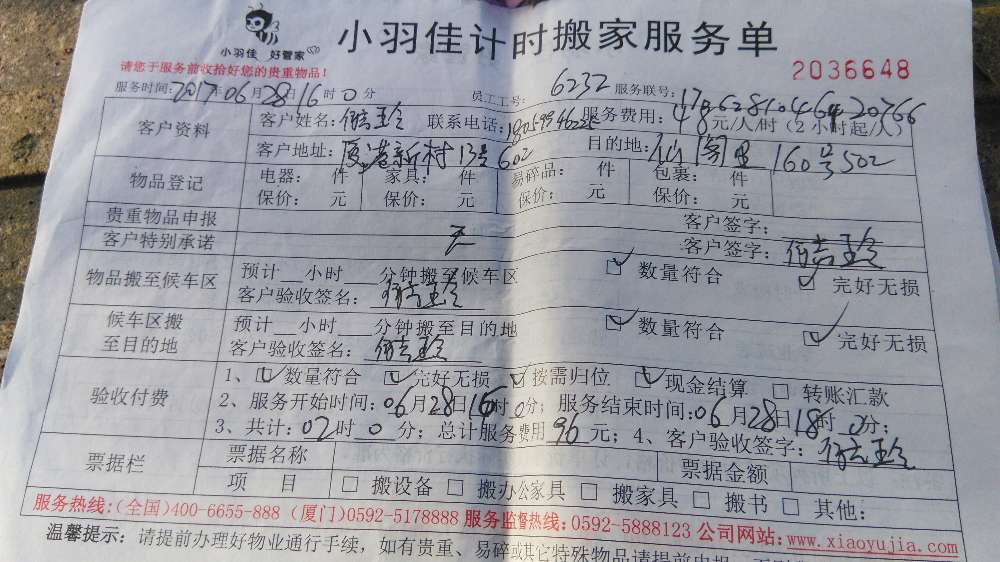 小羽佳 好管家
小羽佳计时搬家服务单
请您于服务前收拾好您的贵重物品!
2036648
服务时间:2017年06月28日16时0分 员工工号: 6232 服务联号:
客户资料 客户姓名: 联系电话: 服务费用:48元/人/时(2小时起/人)
客户地址:厦港新村13号602 目的地:仙阁里160号502
物品登记 电器: 件 家具: 件 易碎品: 件 包裹: 件
保价: 元 保价: 元 保价: 元 保价: 元
贵重物品申报 客户签字:
客户特别承诺 无 客户签字:
物品搬至候车区 预计__小时___分钟搬至候车区 数量符合 完好无损
客户验收签名:
候车区搬至目的地 预计__小时___分钟搬至目的地 数量符合 完好无损
客户验收签名:
验收付费 1、数量符合 完好无损 按需归位 现金结算 转账汇款
2、服务开始时间:06月28日16时0分;服务结束时间:06月28日18时0分;
3、共计:02时0分;总计服务费用96元;4、客户验收签字:
票据栏 票据名称 票据金额
项 目 搬设备 搬办公家具 搬家具 搬书 其他:
服务热线:(全国)400-6655-888 (厦门)0592-5178888 服务监督热线:0592-5888123 公司网站:www.xiaoyujia.com
温馨提示:请提前办理好物业通行手续,如有贵重、易碎或其它特殊物品请提前申报,